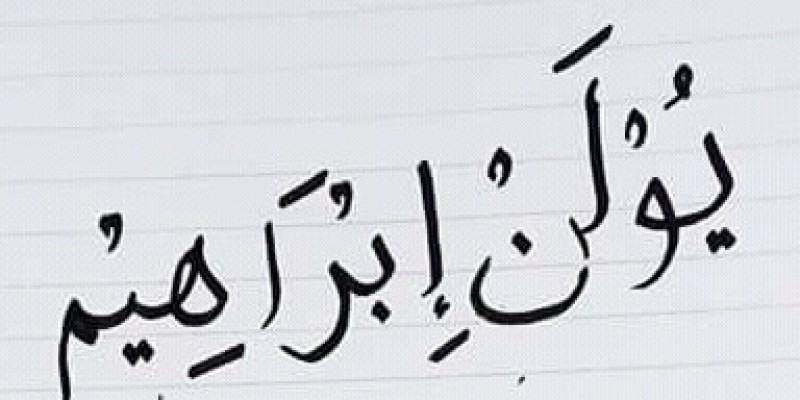 يُوْلَنْ إِبْرَاهِيْم